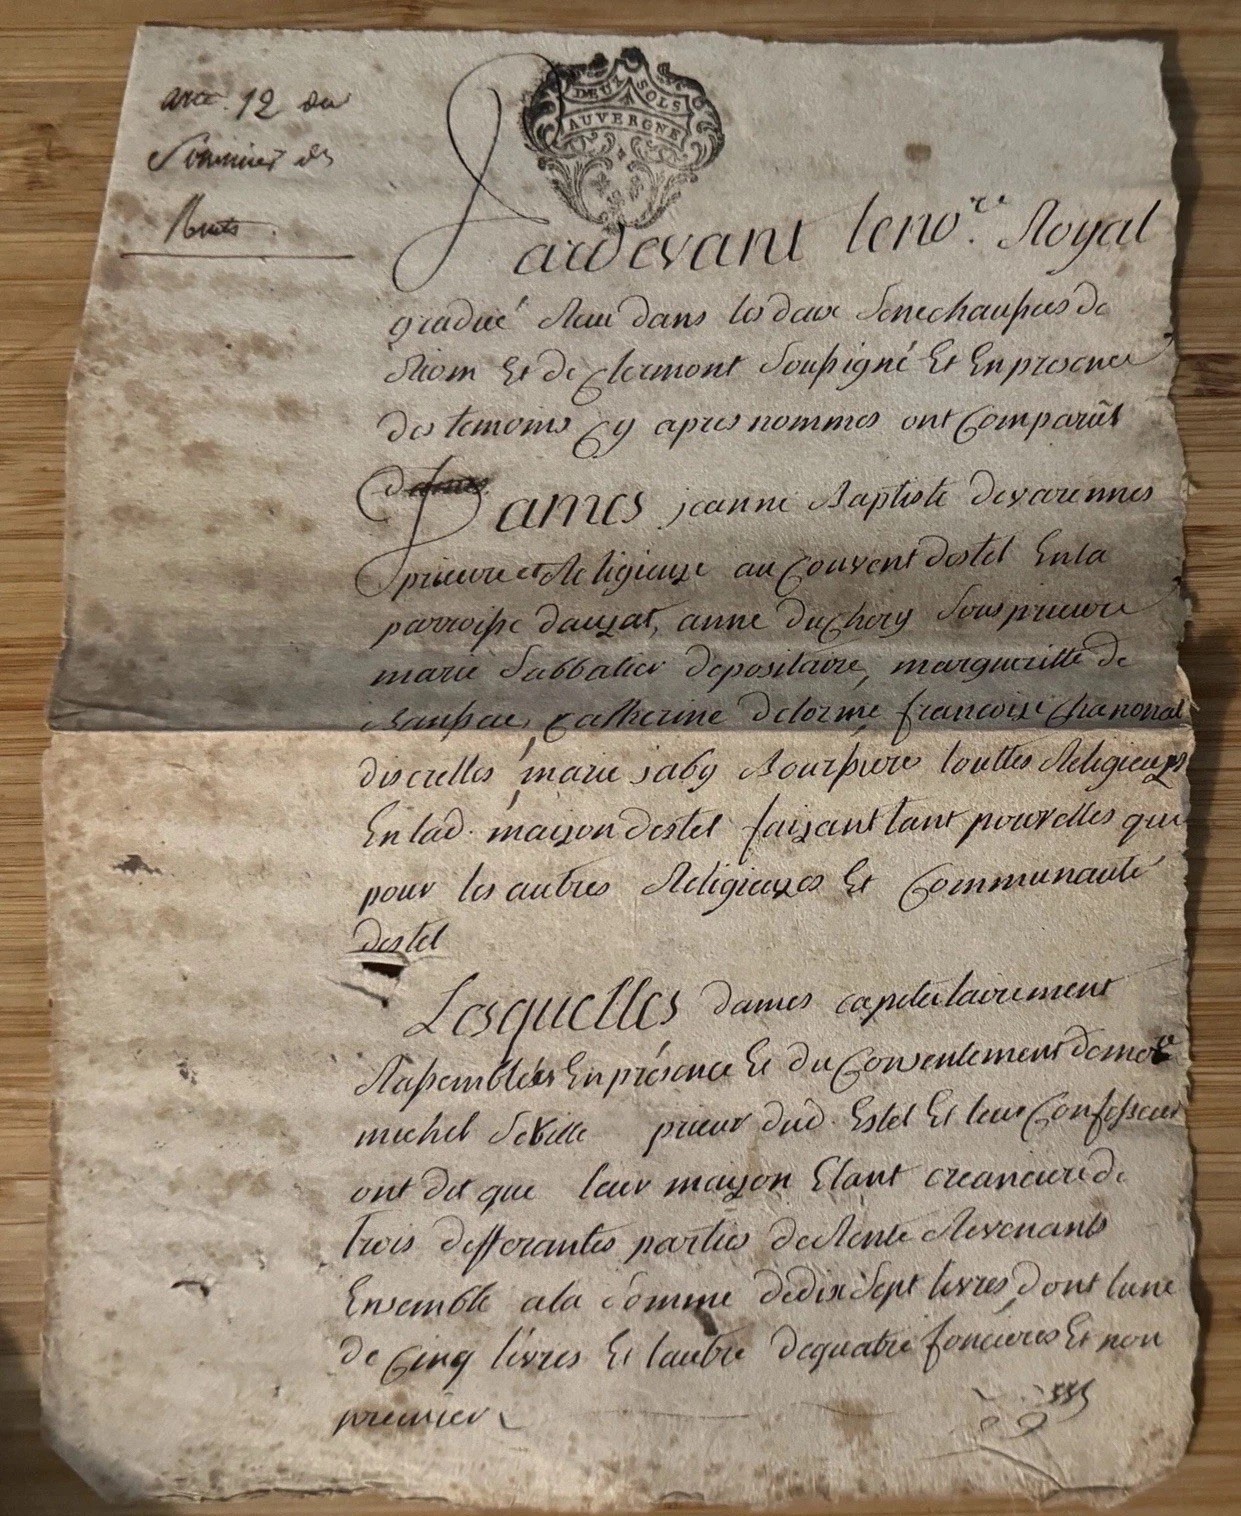 art. 12 du
Sommier des
Rentes
DEUX SOLS
AUVERGNE
Pardevant le no.re Royal
gradué Reçu dans les deux Senechaussées de
Riom Et de Clermont Soussigné Et En presence
des temoins Cy apres nommes ont Comparût
Dames jeanne Baptiste devarennes
prieure et Religieuze au Couvent destel En la
parroisse dauzat, anne duchery Sousprieure
marie Sabbatier depositaire, margueritte de
Banssac, Catherine delorme francoize Chanonat
discrettes, marie jaby Boursiere touttes Religieuzes
En lad. maizon destel faizant tant pour elles que
pour les autres Religieuzes Et Communauté
destel
Lesquelles dames capitulairement
Rassemblées En présence Et du Consentement de
michel prieur dud. Estel Et leur Confesseur
ont dit que leur maizon Etant creanciere de
trois differantes parties de Rente Revenants
Ensemble a la Somme de dix Sept livres, dont lune
de Cinq livres Et lautre de quatre foncieres Et non